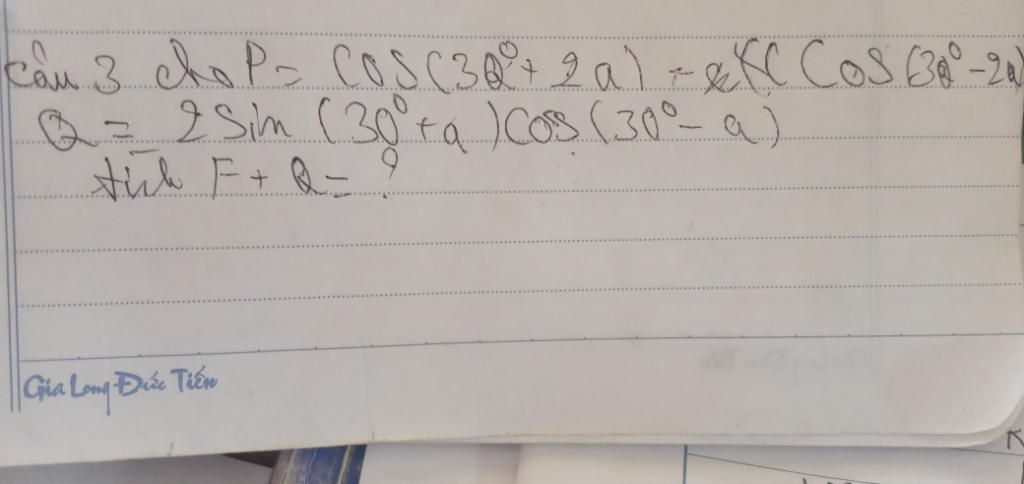 Câu 3 cho P = COS(30° + 2a) - COS(30° - 2a)
Q = 2Sin (30° + a) COS (30° - a)
tính F + Q = ?
Gia Long Đức Tiến